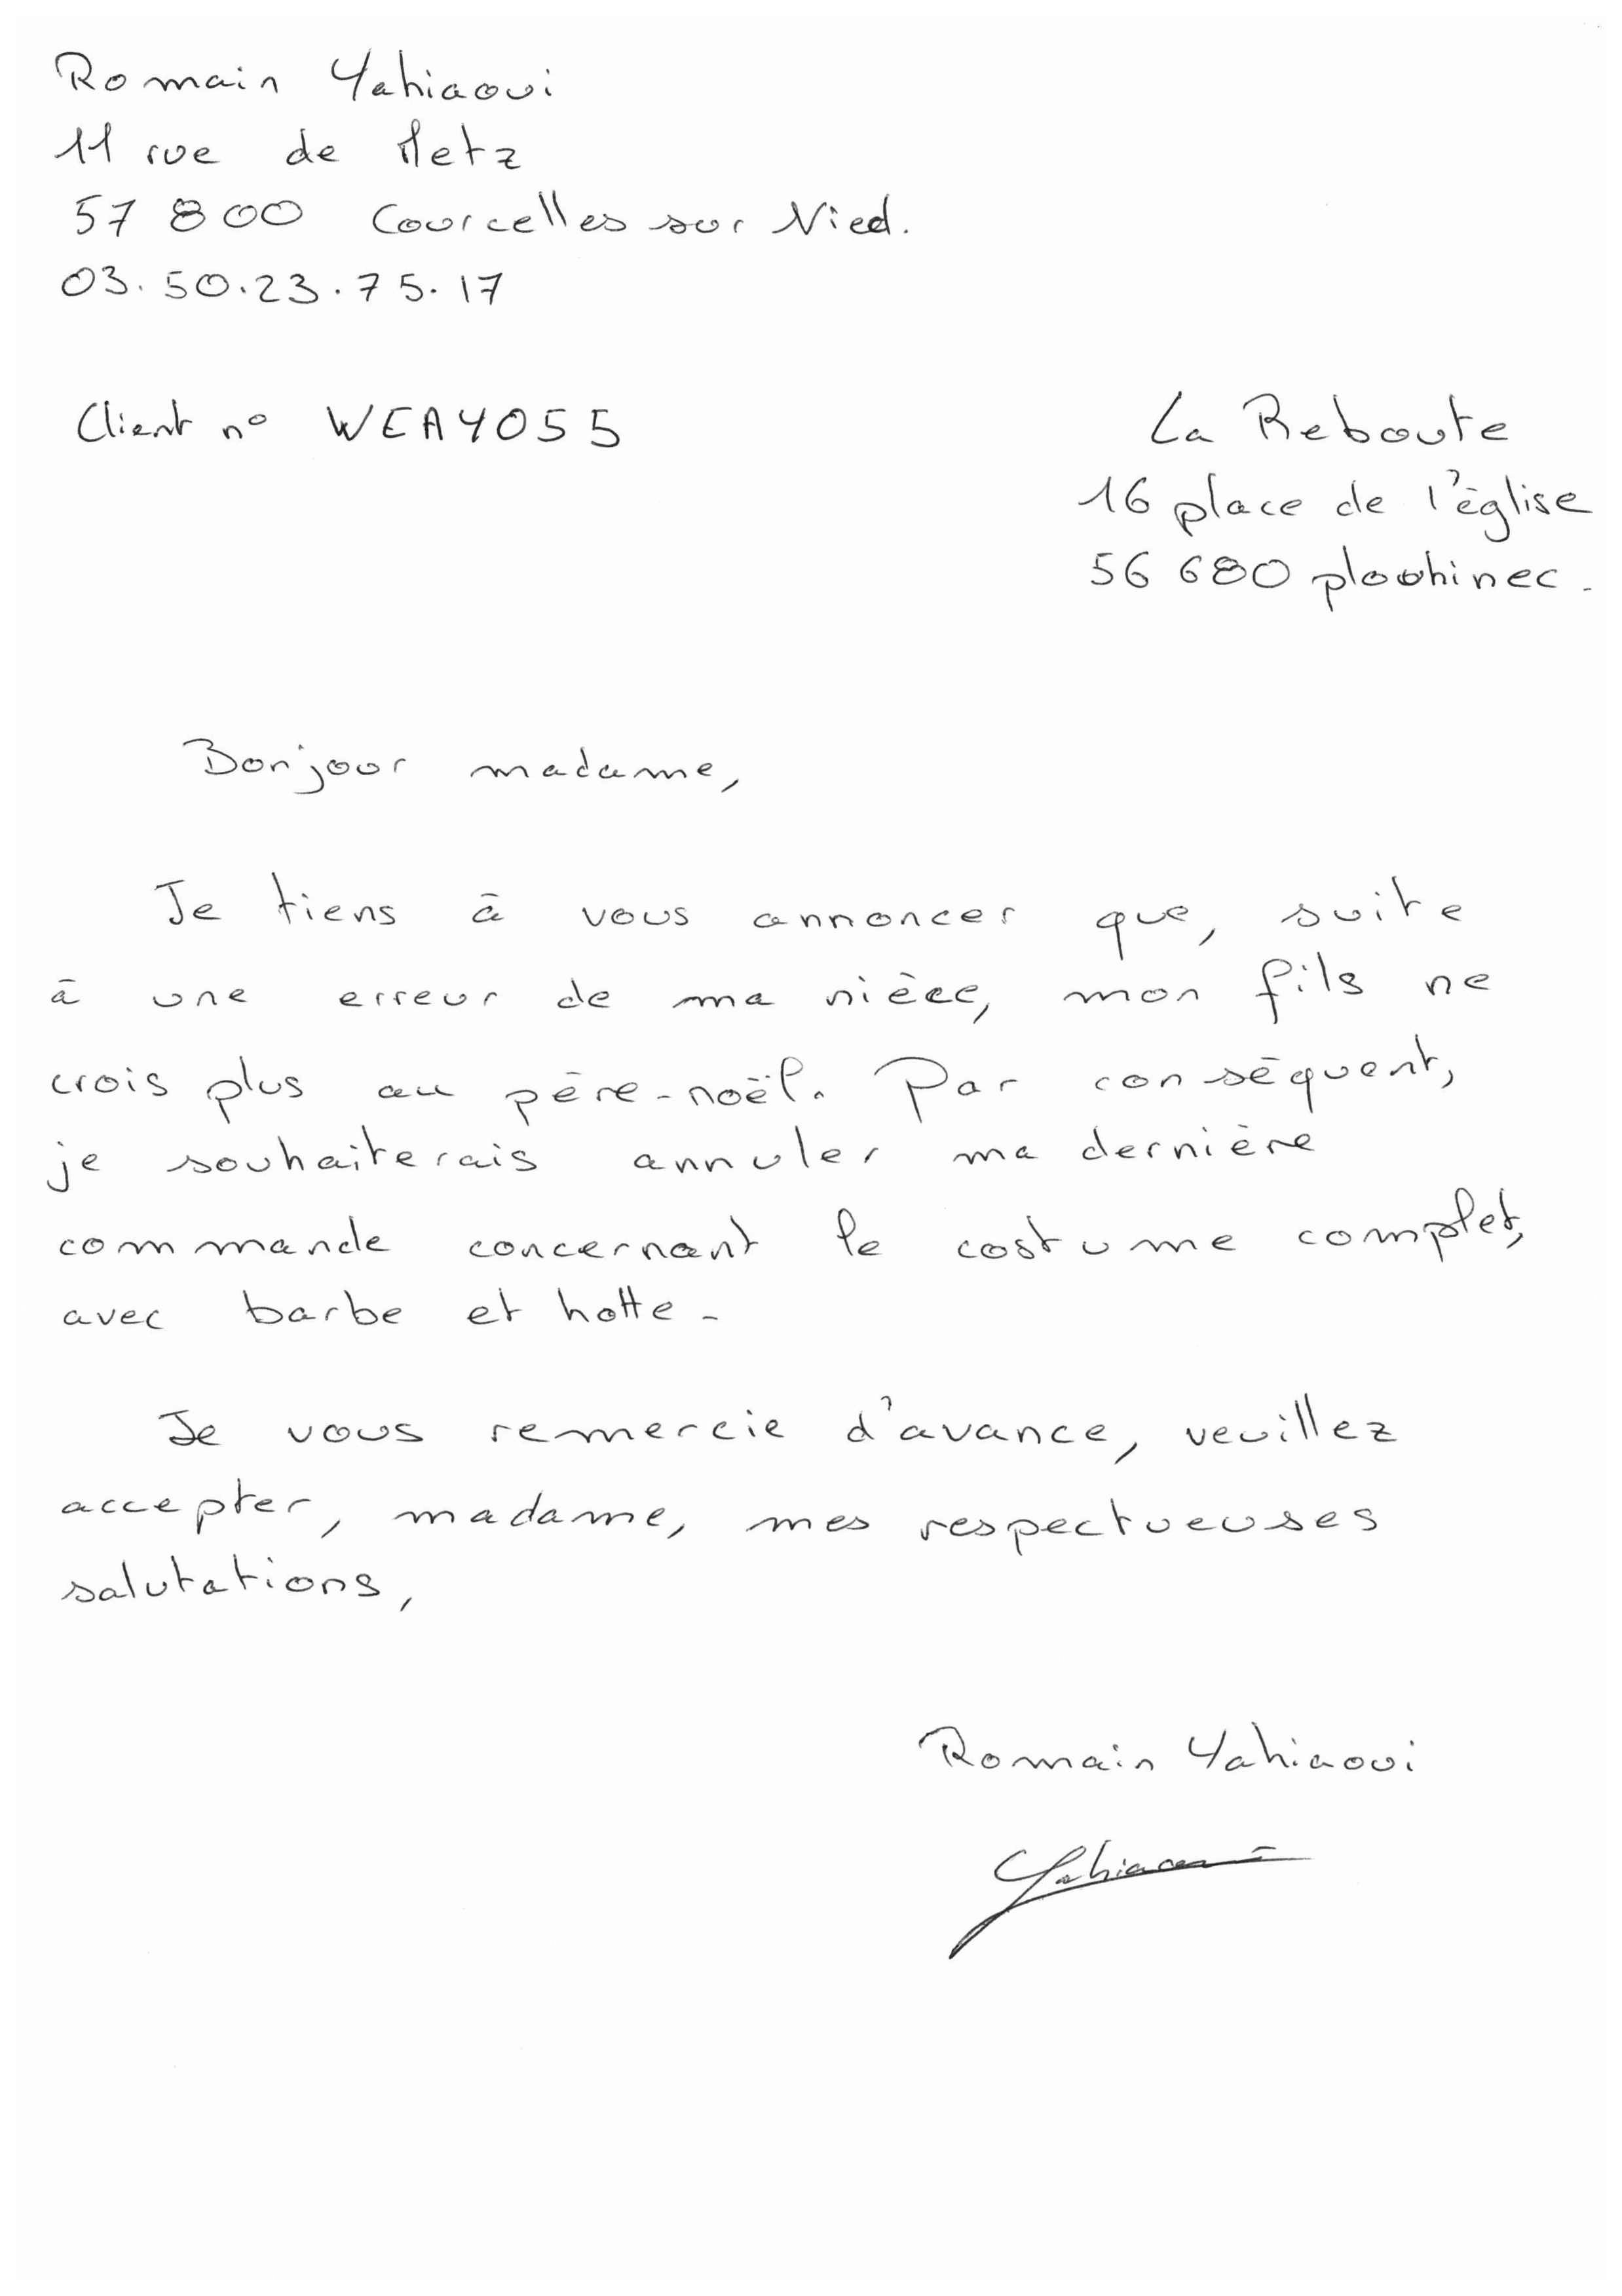 Romain Yahiaoui
11 rue de Metz
57 800 Courcelles sur Nied.
03.50.23.75.17
Client n° WEAY055
La Reboute
16 place de l'église
56 680 plouhinec.
Bonjour madame,
Je tiens à vous annoncer que, suite
à une erreur de ma nièce, mon fils ne
crois plus au père-noël. Par conséquent,
je souhaiterais annuler ma dernière
commande concernant le costume complet,
avec barbe et hotte.
Je vous remercie d'avance, veuillez
accepter, madame, mes respectueuses
salutations,
Romain Yahiaoui
Yahiaoui